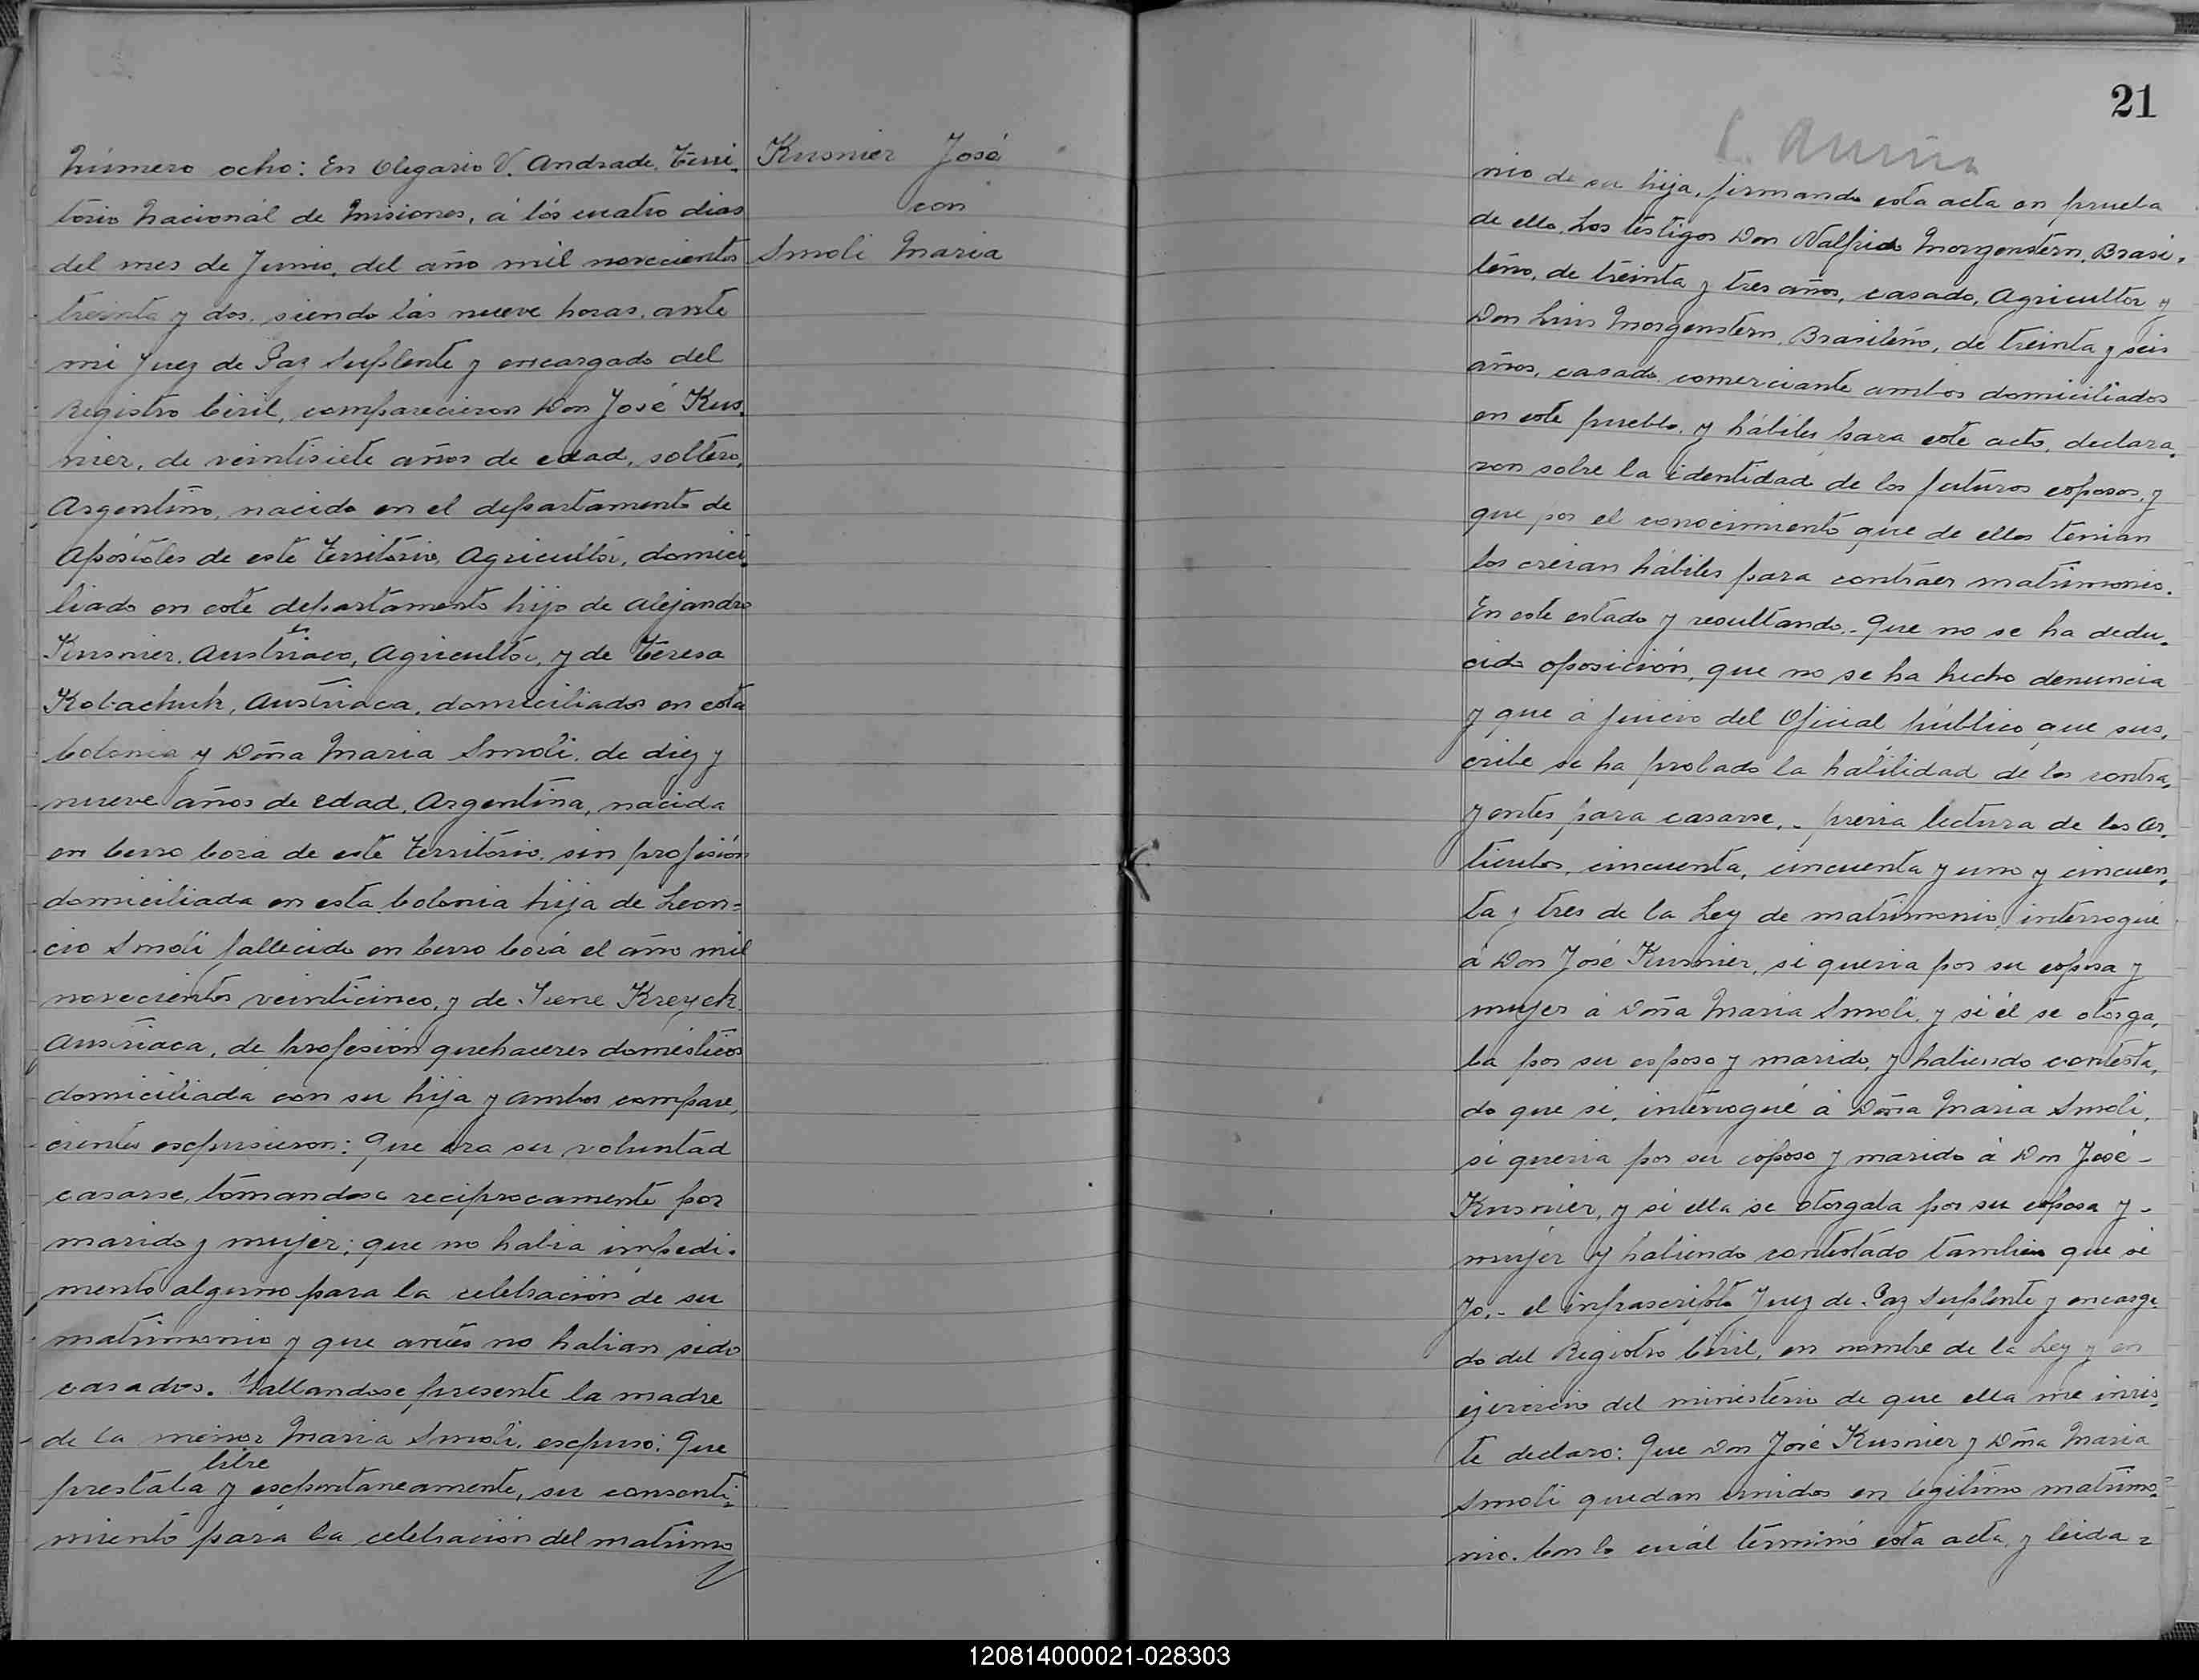 Número ocho: En Olegario V. Andrade, Terri-
torio Nacional de Misiones, á los cuatro dias
del mes de Junio, del año mil novecientos
treinta y dos, siendo las nueve horas, ante
mi Juez de Paz Suplente y encargado del
Registro Civil, comparecieron Don José Kus-
nier, de veintisiete años de edad, soltero,
Argentino, nacido en el departamento de
Apóstoles de este Territorio, Agricultor, domici-
liado en este departamento hijo de Alejandro
Kusnier, Austriaco, Agricultor, y de Teresa
Kobachuk, Austriaca, domiciliados en esta
Colonia y Doña Maria Smoli, de diez y
nueve años de edad, Argentina, nacida
en Cerro Corá de este Territorio, sin profesión
domiciliada en esta Colonia hija de Leon=
cio Smoli fallecido en Cerro Corá el año mil
novecientos veinticinco, y de Irene Kreyck
Austriaca, de profesión quehaceres domésticos
domiciliada con su hija y ambos compare-
cientes expusieron: Que era su voluntad
casarse, tomandose reciprocamente por
marido y mujer; que no habia impedi-
mento alguno para la celebración de su
matrimonio y que antes no habian sido
casados. Hallandose presente la madre
de la menor Maria Smoli, expuso: Que
libre
prestaba y espontaneamente, su consenti-
miento para la celebración del matrimo
Kusnier José
con
Smoli Maria
21
nio de su hija, firmando esta acta en prueba
de ello. Los testigos Don Walfrido Morgenstern, Brasi-
leño, de treinta y tres años, casado, Agricultor y
Don Luis Morgenstern, Brasileño, de treinta y seis
años, casado, comerciante ambos domiciliados
en este pueblo, y hábiles para este acto, declara-
ron sobre la identidad de los futuros esposos, y
que por el conocimiento que de ellos tenian
los creian hábiles para contraer matrimonio.
En este estado y resultando.- Que no se ha dedu-
cido oposición, que no se ha hecho denuncia
y que á juicio del Oficial público que sus-
cribe se ha probado la habilidad de los contra-
yentes para casarse.- previa lectura de los Ar-
ticulos, cincuenta, cincuenta y uno y cincuen-
ta y tres de la Ley de matrimonio, interrogué
á Don José Kusnier, si queria por su esposa y
mujer á Doña Maria Smoli, y si él se otorga-
ba por su esposo y marido, y habiendo contesta-
do que si, interrogué á Doña Maria Smoli,
si queria por su esposo y marido á Don José-
Kusnier, y si ella se otorgaba por su esposa y-
mujer y habiendo contestado tambien que si
Yo.- el infrascripto Juez de Paz Suplente y encarga
do del Registro Civil, en nombre de la Ley y en
ejercicio del ministerio de que ella me invis-
te declaro: Que Don José Kusnier y Doña Maria
Smoli quedan unidos en legitimo matrimo=
nio. Con lo cuál terminó esta acta, y leida =
120814000021-028303